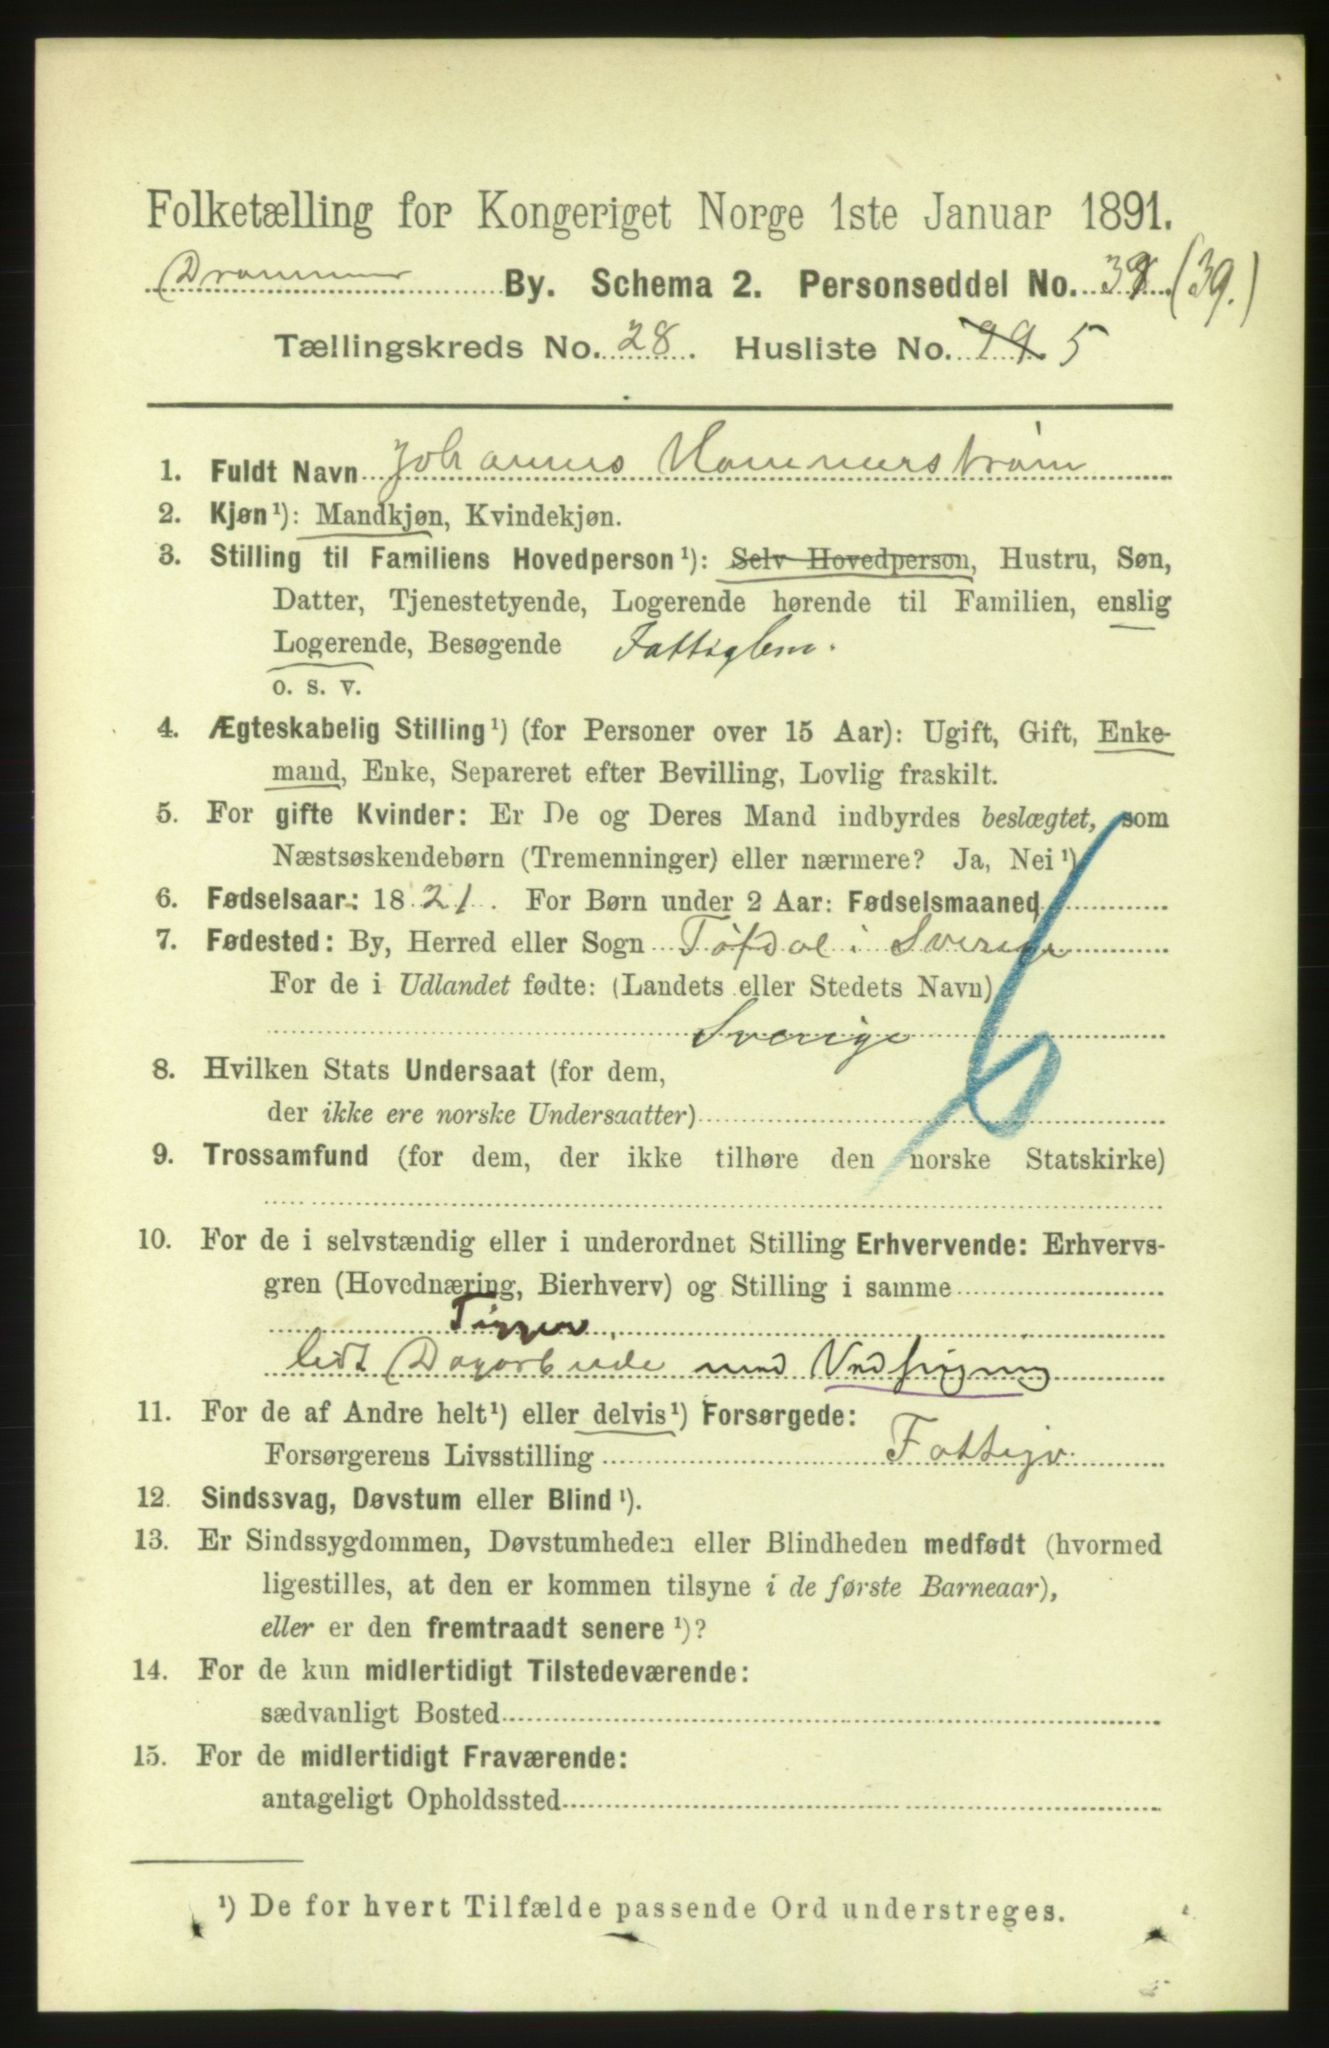 Folketælling for Kongeriget Norge 1ste Januar 1891.
Drammen By. Schema 2. Personseddel No. 38 (39.)
Tællingskreds No. 28. Husliste No. 99 5
1. Fuldt Navn Johannes Hammerstrøm
2. Kjøn¹): Mandkjøn, Kvindekjøn.
3. Stilling til Familiens Hovedperson¹): Selv Hovedperson, Hustru, Søn,
Datter, Tjenestetyende, Logerende hørende til Familien, enslig
Logerende, Besøgende Fattiglem.
o. s. v.
4. Ægteskabelig Stilling¹) (for Personer over 15 Aar): Ugift, Gift, Enke-
mand, Enke, Separeret efter Bevilling, Lovlig fraskilt.
5. For gifte Kvinder: Er De og Deres Mand indbyrdes beslægtet, som
Næstsøskendebørn (Tremenninger) eller nærmere? Ja, Nei¹)
6. Fødselsaar: 1821. For Børn under 2 Aar: Fødselsmaaned
7. Fødested: By, Herred eller Sogn Töfdal i Sverige
For de i Udlandet fødte: (Landets eller Stedets Navn)
Sverige
8. Hvilken Stats Undersaat (for dem,
der ikke ere norske Undersaatter)
9. Trossamfund (for dem, der ikke tilhøre den norske Statskirke)
10. For de i selvstændig eller i underordnet Stilling Erhvervende: Erhvervs-
gren (Hovednæring, Bierhverv) og Stilling i samme
Tigger,
lidt Dagarbeide med Vedsagning
11. For de af Andre helt¹) eller delvis¹) Forsørgede:
Forsørgerens Livsstilling Fattigv.
12. Sindssvag, Døvstum eller Blind¹).
13. Er Sindssygdommen, Døvstumheden eller Blindheden medfødt (hvormed
ligestilles, at den er kommen tilsyne i de første Barneaar),
eller er den fremtraadt senere¹)?
14. For de kun midlertidigt Tilstedeværende:
sædvanligt Bosted
15. For de midlertidigt Fraværende:
antageligt Opholdssted
¹) De for hvert Tilfælde passende Ord understreges.